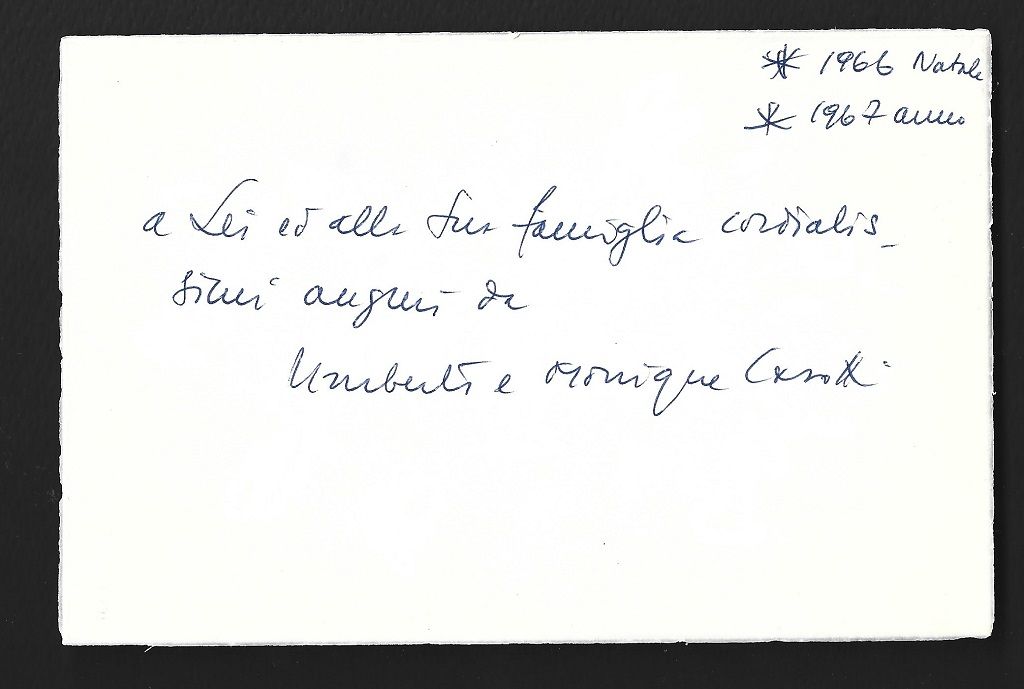 * 1966 Natale
* 1967 anno
a Lei ed alla Sua famiglia cordialis_
simi auguri da
Umberto e Monique